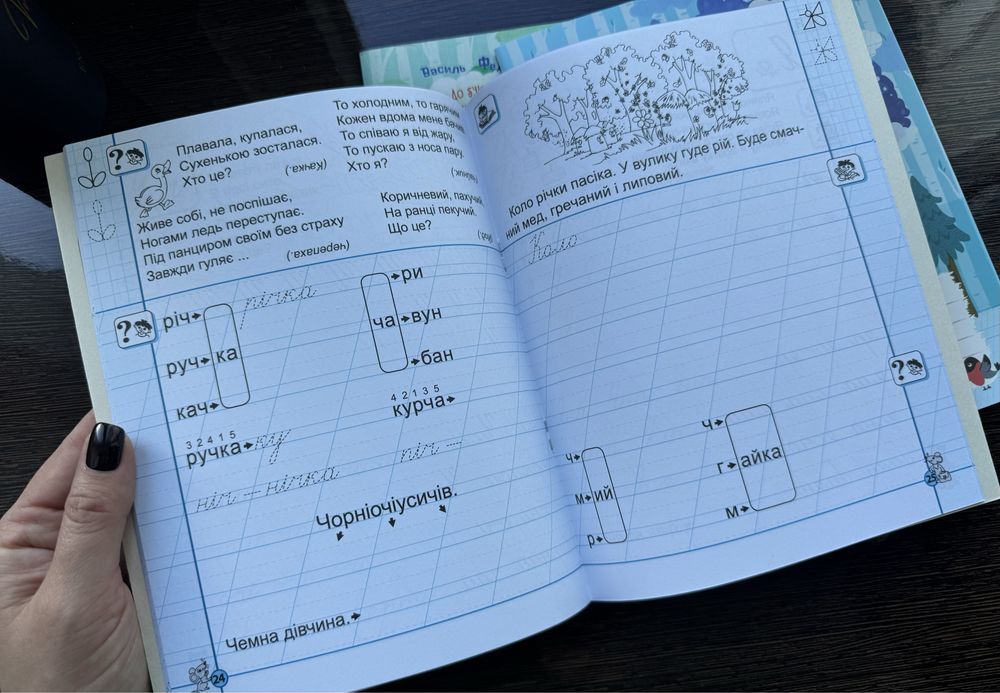 Плавала, купалася,
Сухенькою зосталася.
Хто це? (Качка.)
Живе собі, не поспішає,
Ногами ледь переступає.
Під панциром своїм без страху
Завжди гуляє ... (черепаха.)
То холодним, то гарячим
Кожен вдома мене бачив.
То співаю я від жару,
То пускаю з носа пару.
Хто я?
Коричневий, пахучий,
На ранці пекучий.
Що це?
?
річ
руч ка
кач
річка
ри
ча вун
бан
3 2 4 1 5
ручка ку
4 2 1 3 5
курча
ніч – нічка
піч –
Чорніочіусичів.
Чемна дівчина.
24
Василь
Коло річки пасіка. У вулику гуде рій. Буде смач-
ний мед, гречаний і липовий.
Коло
?
ч
м ий
р
ч
г айка
м
25